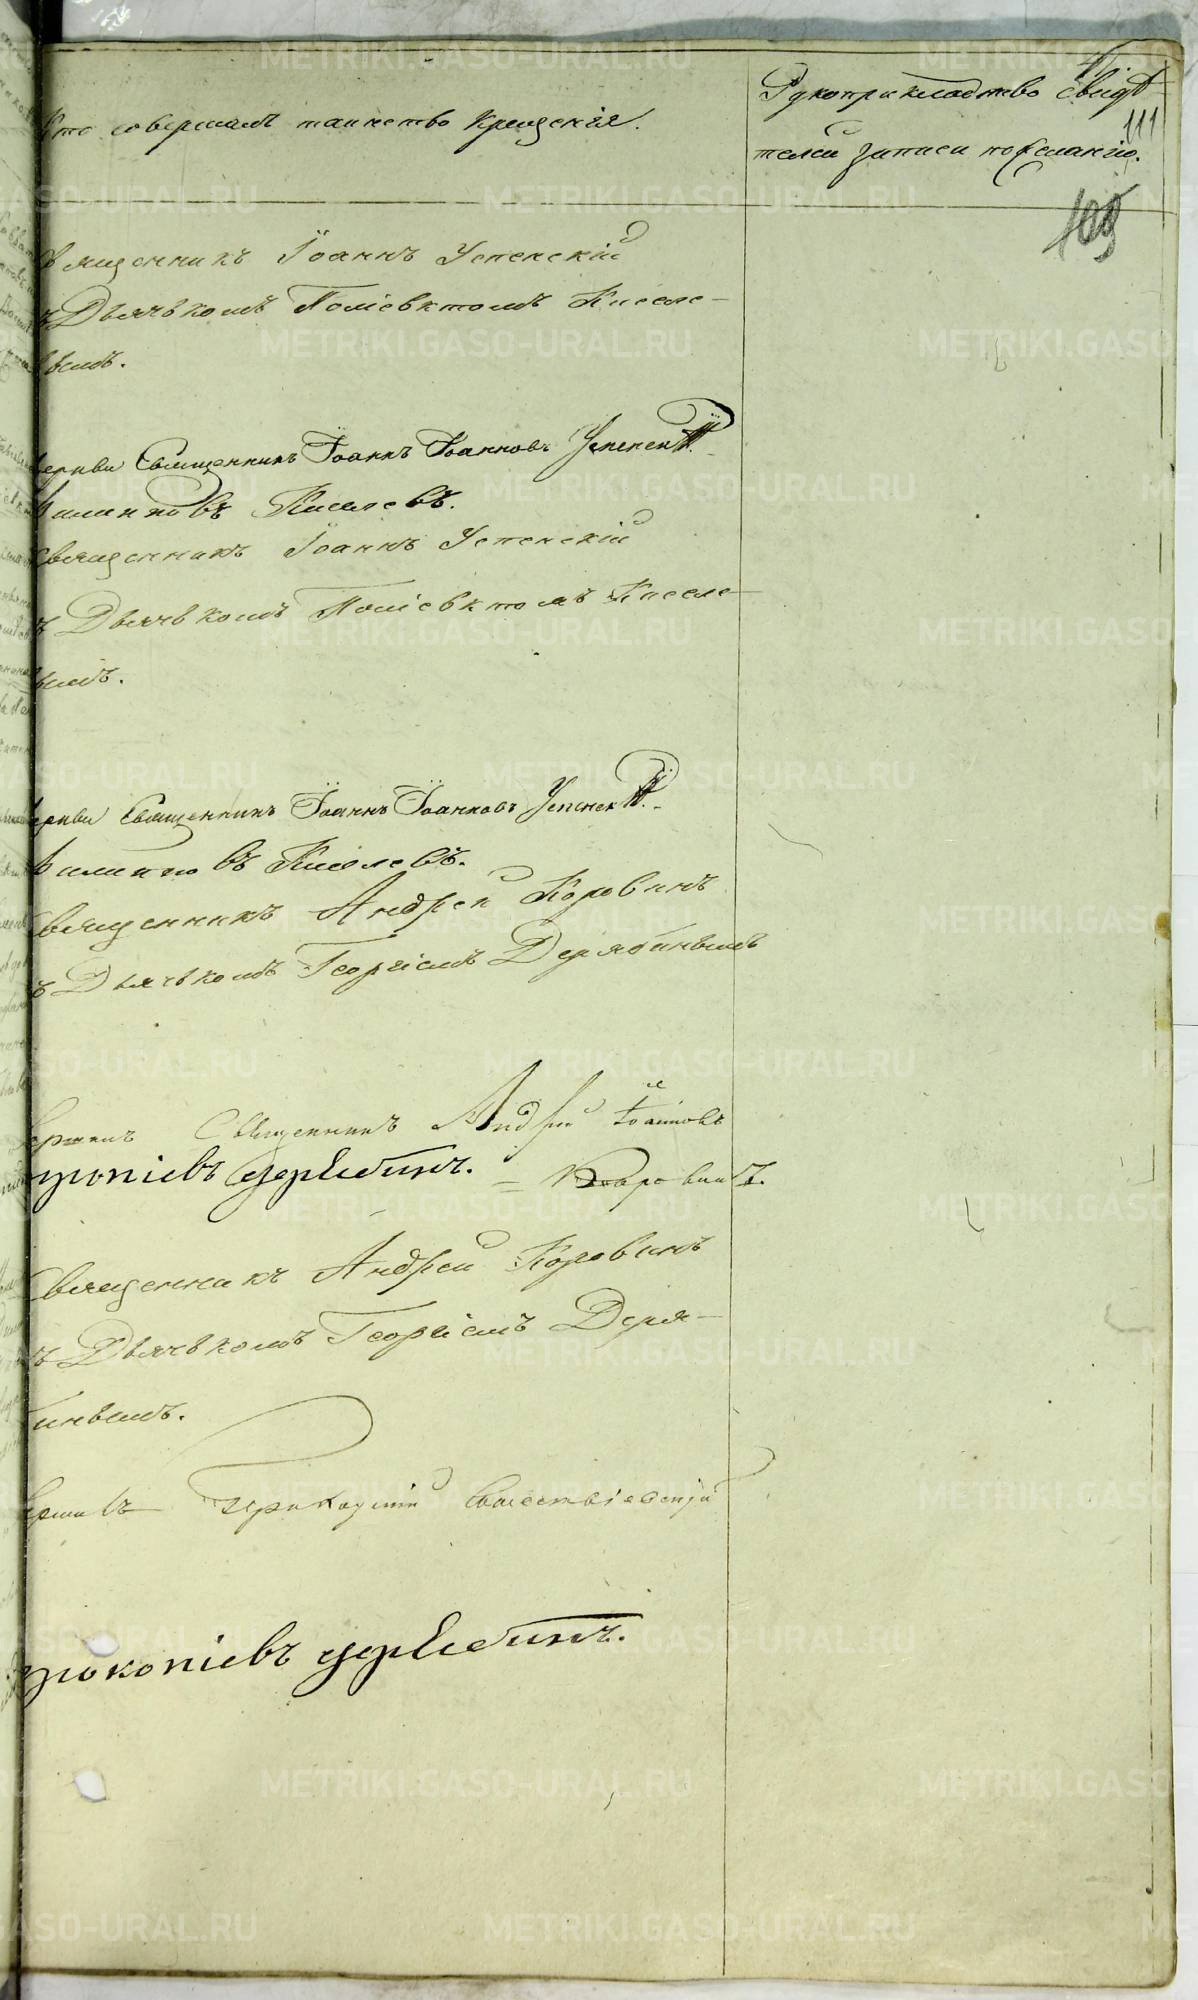 Кто совершалъ таинство крещенія.
Рукоприкладство свидѣ-
телей записи по желанію.
111
109
Священникъ Іоаннъ Успенскій
съ Дьячькомъ Поліевктомъ Киселе-
вымъ.
церкви Священникъ Іоаннъ Іоанновъ Успенскій
Филипповъ Киселевъ.
Священникъ Іоаннъ Успенскій
съ Дьячькомъ Поліевктомъ Киселе-
вымъ.
церкви Священникъ Іоаннъ Іоанновъ Успенскій
Филипповъ Киселевъ.
Священникъ Андрей Коровинъ
съ Дьячькомъ Георгіемъ Дерябинымъ
Священникъ Андрей Іоанновъ
прокопіевъ дерябинъ. = Коровинъ.
Священникъ Андрей Коровинъ
съ Дьячькомъ Георгіемъ Деря-
бинымъ.
прокопіевъ дерябинъ.
METRIKI.GASO-URAL.RU